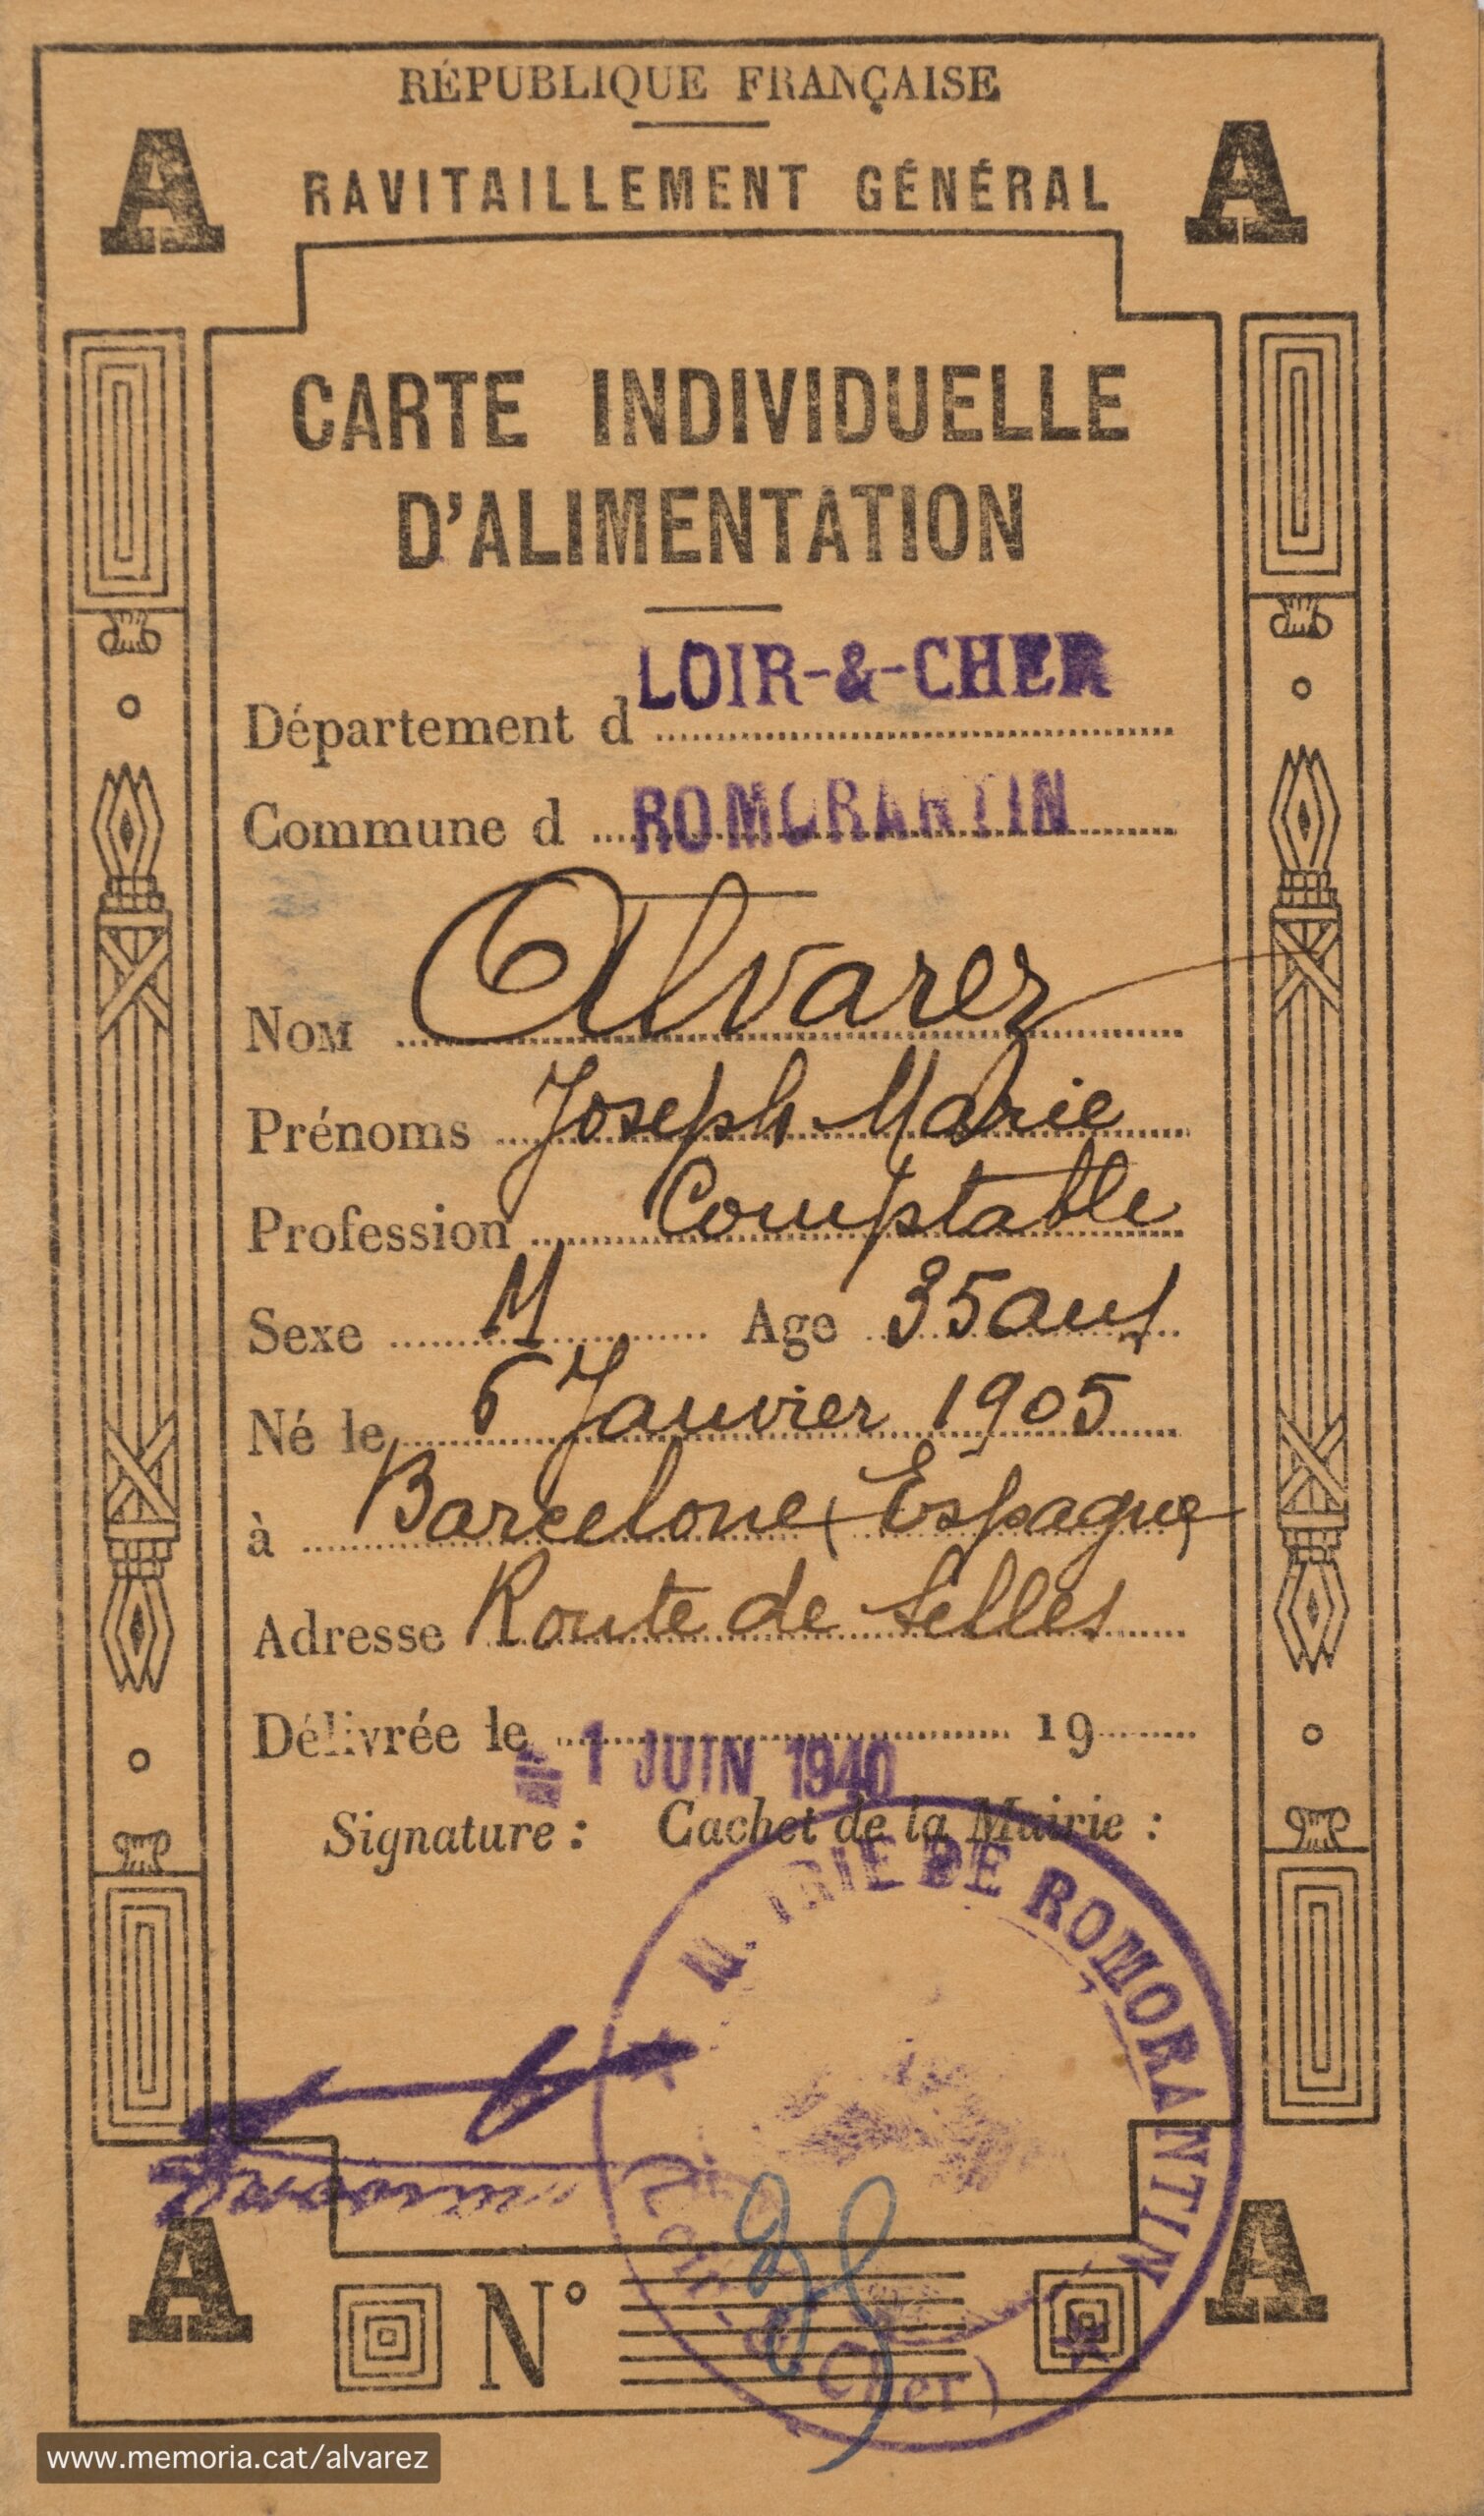 RÉPUBLIQUE FRANÇAISE
A RAVITAILLEMENT GÉNÉRAL A
CARTE INDIVIDUELLE
D'ALIMENTATION
Département d LOIR-&-CHER
Commune d ROMORANTIN
NOM Alvarez
Prénoms Joseph Marie
Profession Comptable
Sexe M Age 35 ans
Né le 6 Janvier 1905
à Barcelone (Espagne)
Adresse Route de Selles
Délivrée le 1 JUIN 1940 19
Signature : Cachet de la Mairie :
MAIRIE DE ROMORANTIN
(Loir-&-Cher)
A N° A
www.memoria.cat/alvarez